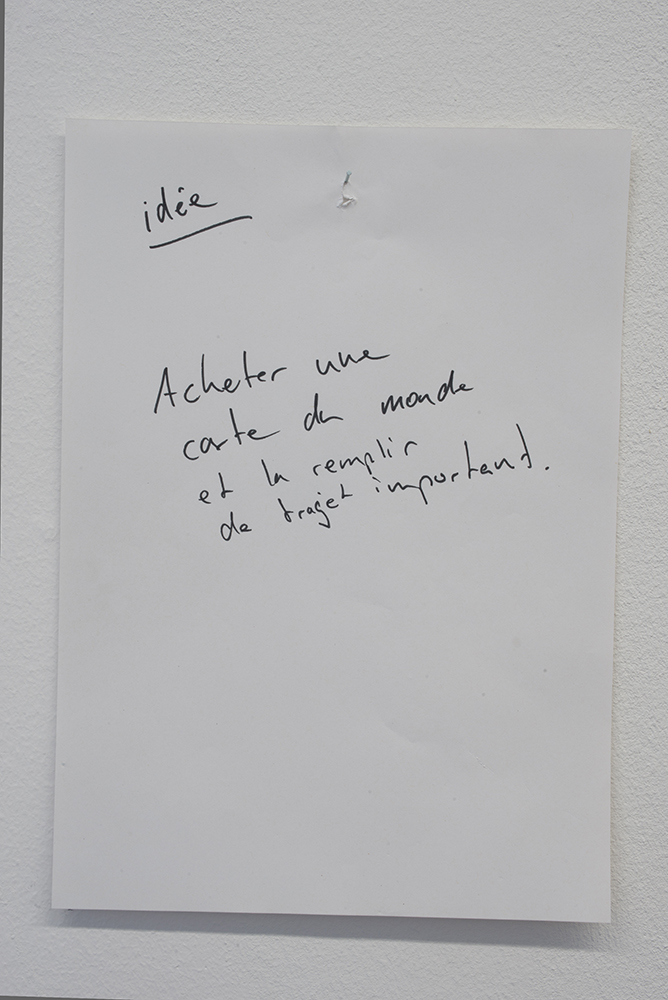 idée
Acheter une
carte du monde
et la remplir
de trajet important.